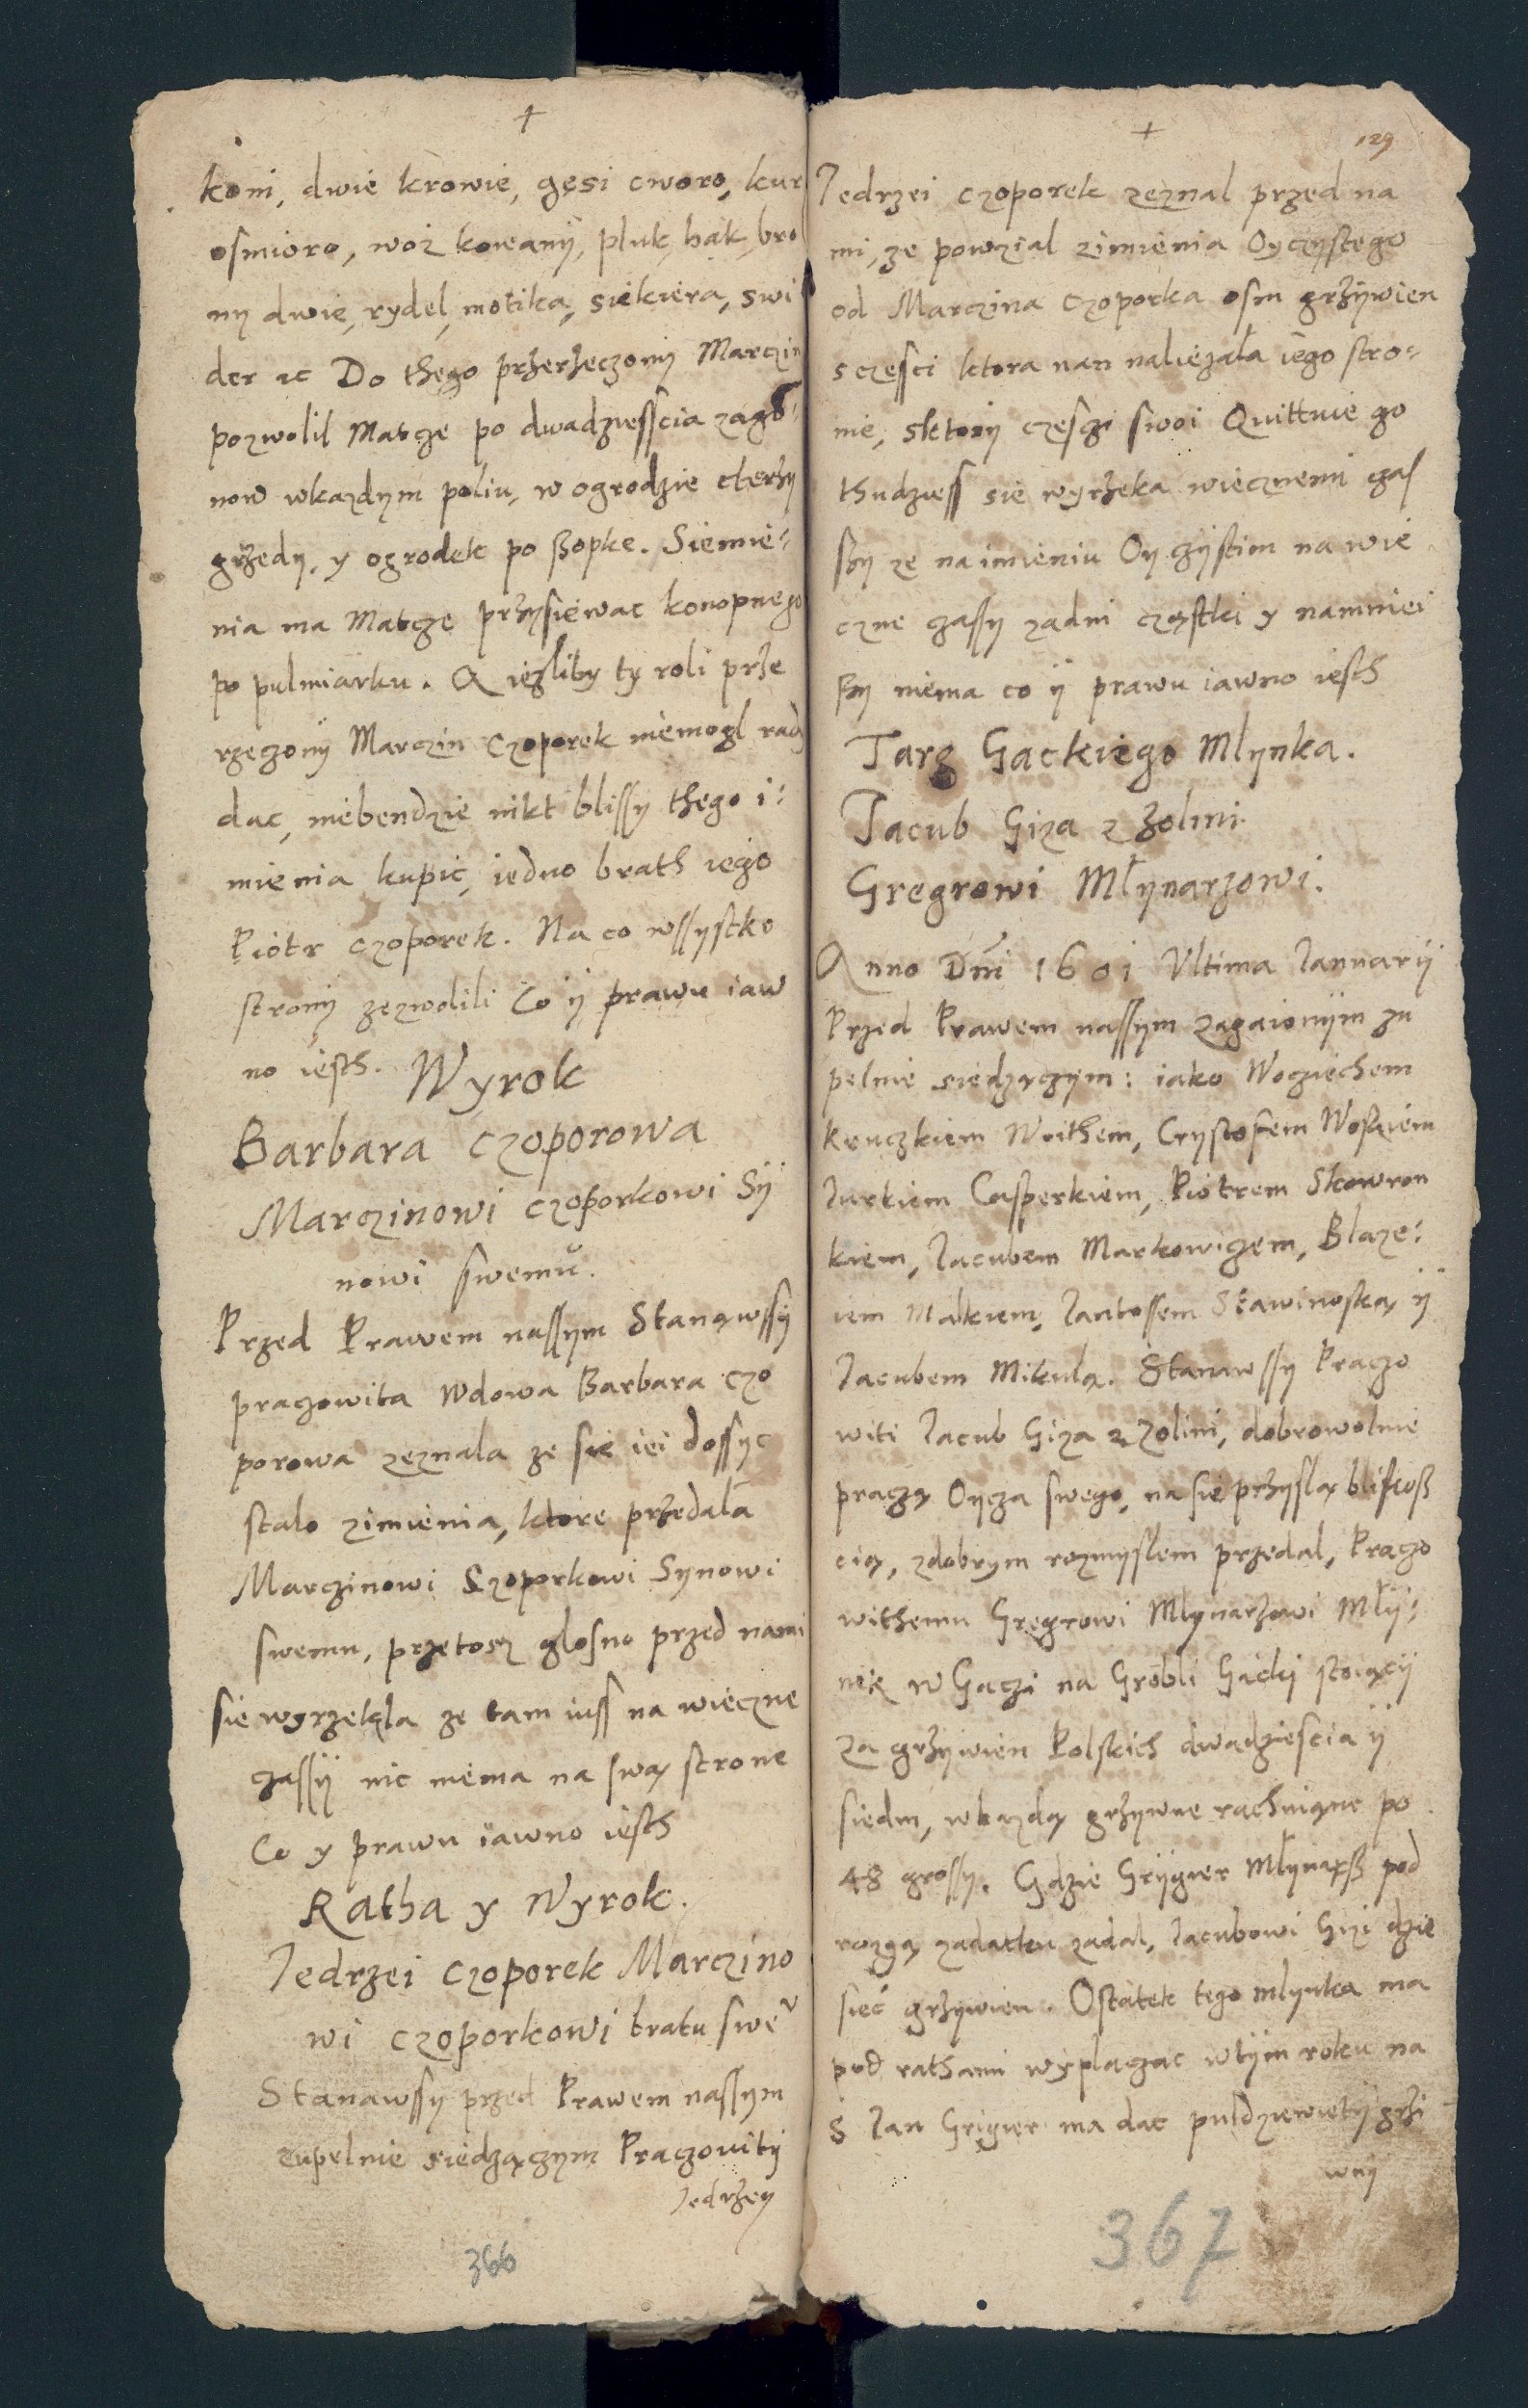 +
koni, dwie krowie, gęsi cworo, kur
osmioro, woz kowany, pluk, hak, bro
ny dwie, rydel, motika, siekiera, swi
der ıc Do thego przerzeczony Marczin
pozwolil Matcze po dwadziesscia zago-
now wkazdym poliu, w ogrodzie cterzy
grzedy, y ogrodek po szopke. Siemie-
nia ma Matcze przysiewac konopnego
po pulmiarku. A iezliby ty roli prze
rzeczony Marczin Czoporek niemogl rady
dac, niebendzie nikt blissy thego i-
mienia kupic, iedno brath iego
Piotr czoporek. Na co wssystko
strony zezwolili Co ÿ prawu iaw
no iesth. Wyrok
Barbara czoporowa
Marczinowi czoporkowi Sÿ
nowi swemu.
Przed Prawem nassym Stanąwssy
praczowita Wdowa Barbara czo
porowa zeznala ze sie iei dossyc
stalo zimienia, ktore przedala
Marczinowi Czoporkowi Synowi
swemu, przetosz glosno przed nami
sie wyrzekla ze tam iuss na wieczne
czassÿ nic niema na swą strone
Co y prawu iawno iesth
Ratha y Wyrok.
Jedrzei czoporek Marczino
wi czoporkowi bratu swe͂
Stanawssy przed Prawem nassym
zupelnie siedzączym Praczowity
Jedrzey
366
+
129
Jedrzei czoporek zeznal przed na
mi, ze powzial zimienia Oyczystego
od Marczina czoporka osm grzywien
s częsci ktora nan naliezala iego stro-
nie, sktory częsczi swoi Quittuie go
thudziess sie wyrzeka wiecznemi czas
sy ze na imieniu Oyczystim na wie
czne czassy zadni cząstki y namniei
szy niema co ÿ prawu iawno iesth
Targ Gackiego Mlynka.
Jacub Giza z Zolini
Gregrowi Młynarzowi.
Anno Dni 1601 Ultima Januarÿ
Przed Prawem nassym zagaionÿm zu
pelnie siedzączym: iako Woczięchem
kruczkiem Woithem, Crystofem Wosniem
Jurkiem Casperkiem, Piotrem Skowron
kiem, Jacubem Markowiczem, Blaze-
iem Malkiem, Jantossem Stawinoską ÿ
Jacubem Mikulą. Stanawssy Praczo
witi Jacub Giza z Zolini, dobrowolnie
praczą Oycza swego, na sie przyslą bliskosz
cią, zdobrym rozmyslem przedal, Praczo
withemu Gregrowi Mlynarzowi Młÿ-
nek w Gaczi na Grobli Gacki stoiącÿ
za grzywien Polskich dwadziescia ÿ
siedm, wkazdą grzywne rachuiąnc po
48 grossy. Gdzie Grÿgier Młÿnarsz pod
rozgą zadatku zadal, Jacubowi Gizi dzie
sieć grzywien. Ostatek tego mlynka ma
pod rathami wyplaczac wtÿm roku na
S Jan Grigier ma dac puldziewietÿ grzi
wny
367